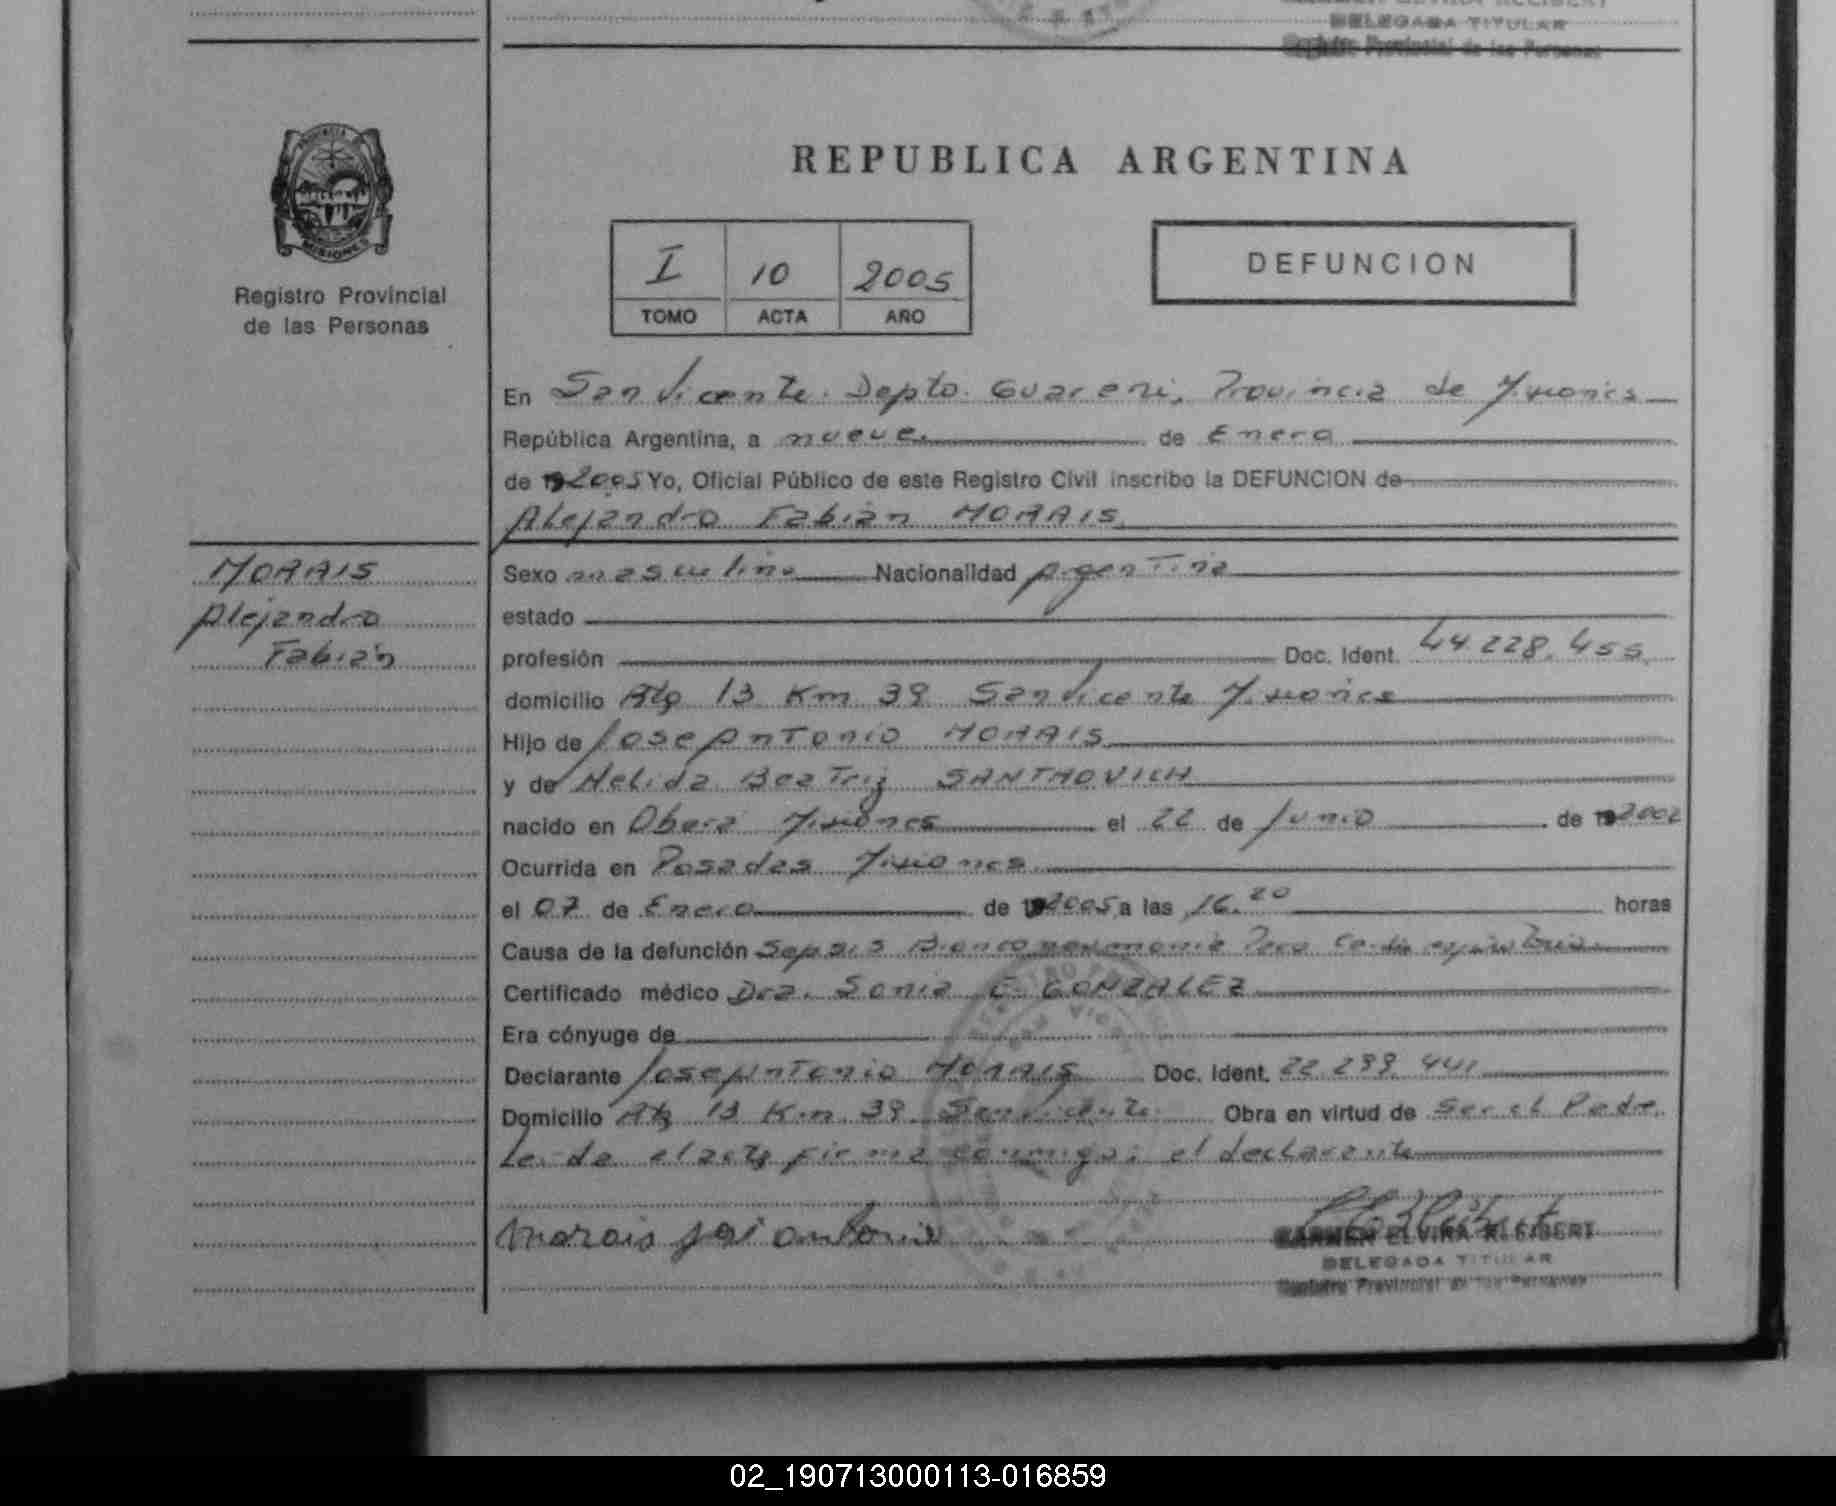 DELEGADA TITULAR
Registro Provincial de las Personas
PROVINCIA DE
MISIONES
Registro Provincial
de las Personas
REPUBLICA ARGENTINA
I 10 2005
TOMO ACTA AÑO
DEFUNCION
En San Vicente. Depto. Guarani, Provincia de Misiones
República Argentina, a nueve de Enero
de 19 2005 Yo, Oficial Público de este Registro Civil inscribo la DEFUNCION de
Alejandro Fabián MORAIS
MORAIS
Alejandro
Fabián
Sexo masculino Nacionalidad Argentina
estado
profesión Doc. Ident. 44.228.455
domicilio Rta 13 Km 39 San Vicente Misiones
Hijo de Jose Antonio MORAIS
y de Nelida Beatriz
nacido en Oberá Misiones el 22 de Junio de 19 2002
Ocurrida en Posadas Misiones
el 07 de Enero de 19 2005 a las 16.20 horas
Causa de la defunción Sepsis Bronconeumonia Paro Cardiorespiratorio
Certificado médico Dra. Sonia E. GONZALEZ
Era cónyuge de
Declarante Jose Antonio MORAIS Doc. Ident. 22.299.441
Domicilio Rta 13 Km 39 San Vicente Obra en virtud de Ser el Padre
Leida el acta firma conmigo: el declarante
Morais José antonio
CARMEN ELVIRA
DELEGADA TITULAR
Registro Provincial de las Personas
02_190713000113-016859